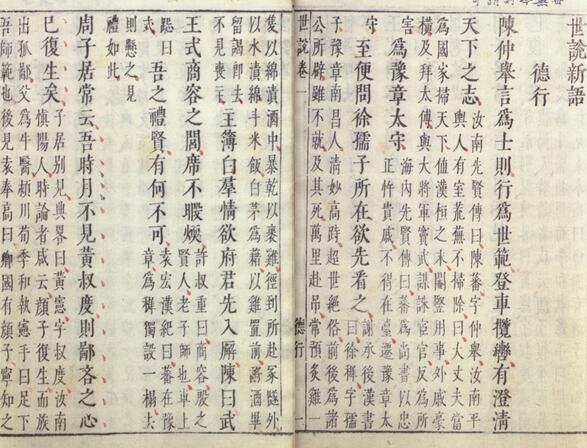 世說新語
德行
陳仲舉言為士則行為世範登車攬轡有澄清
天下之志
汝南先賢傳曰陳蕃字仲舉汝南平
輿人有室荒蕪不掃除曰大丈夫當
為國家掃天下值漢桓之末閹豎用事外戚豪
橫及拜太傅與大將軍竇武謀誅宦官反為所
害
為豫章太守
海內先賢傳曰蕃為尚書以忠
正忤貴戚不得在臺遷豫章太
守
至便問徐孺子所在欲先看之
謝承後漢書
曰徐稺字孺
子豫章南昌人清妙高跱超世絕俗前後為諸
公所辟雖不就及其死萬里赴弔常預炙雞一
世說卷一
德行
一
隻以綿漬酒中暴乾以裹雞徑到所赴冢隧外
以水漬綿斗米飯白茅為藉以雞置前酹酒畢
留謁即去
不見喪主
主簿白羣情欲府君先入廨陳曰武
王式商容之閭席不暇煗
許叔重曰商容殷之
賢人老子師也車上
跽曰
式
吾之禮賢有何不可
袁宏漢紀曰蕃在豫
章為稺獨設一榻去
則懸之見
禮如此
周子居常云吾時月不見黃叔度則鄙吝之心
已復生矣
子居別見典畧曰黃憲字叔度汝南
慎陽人時論者咸云顏子復生而族
出孤鄙父為牛醫潁川荀季和執憲手曰足下
吾師範也後見袁奉高曰卿國有顏子寧知之